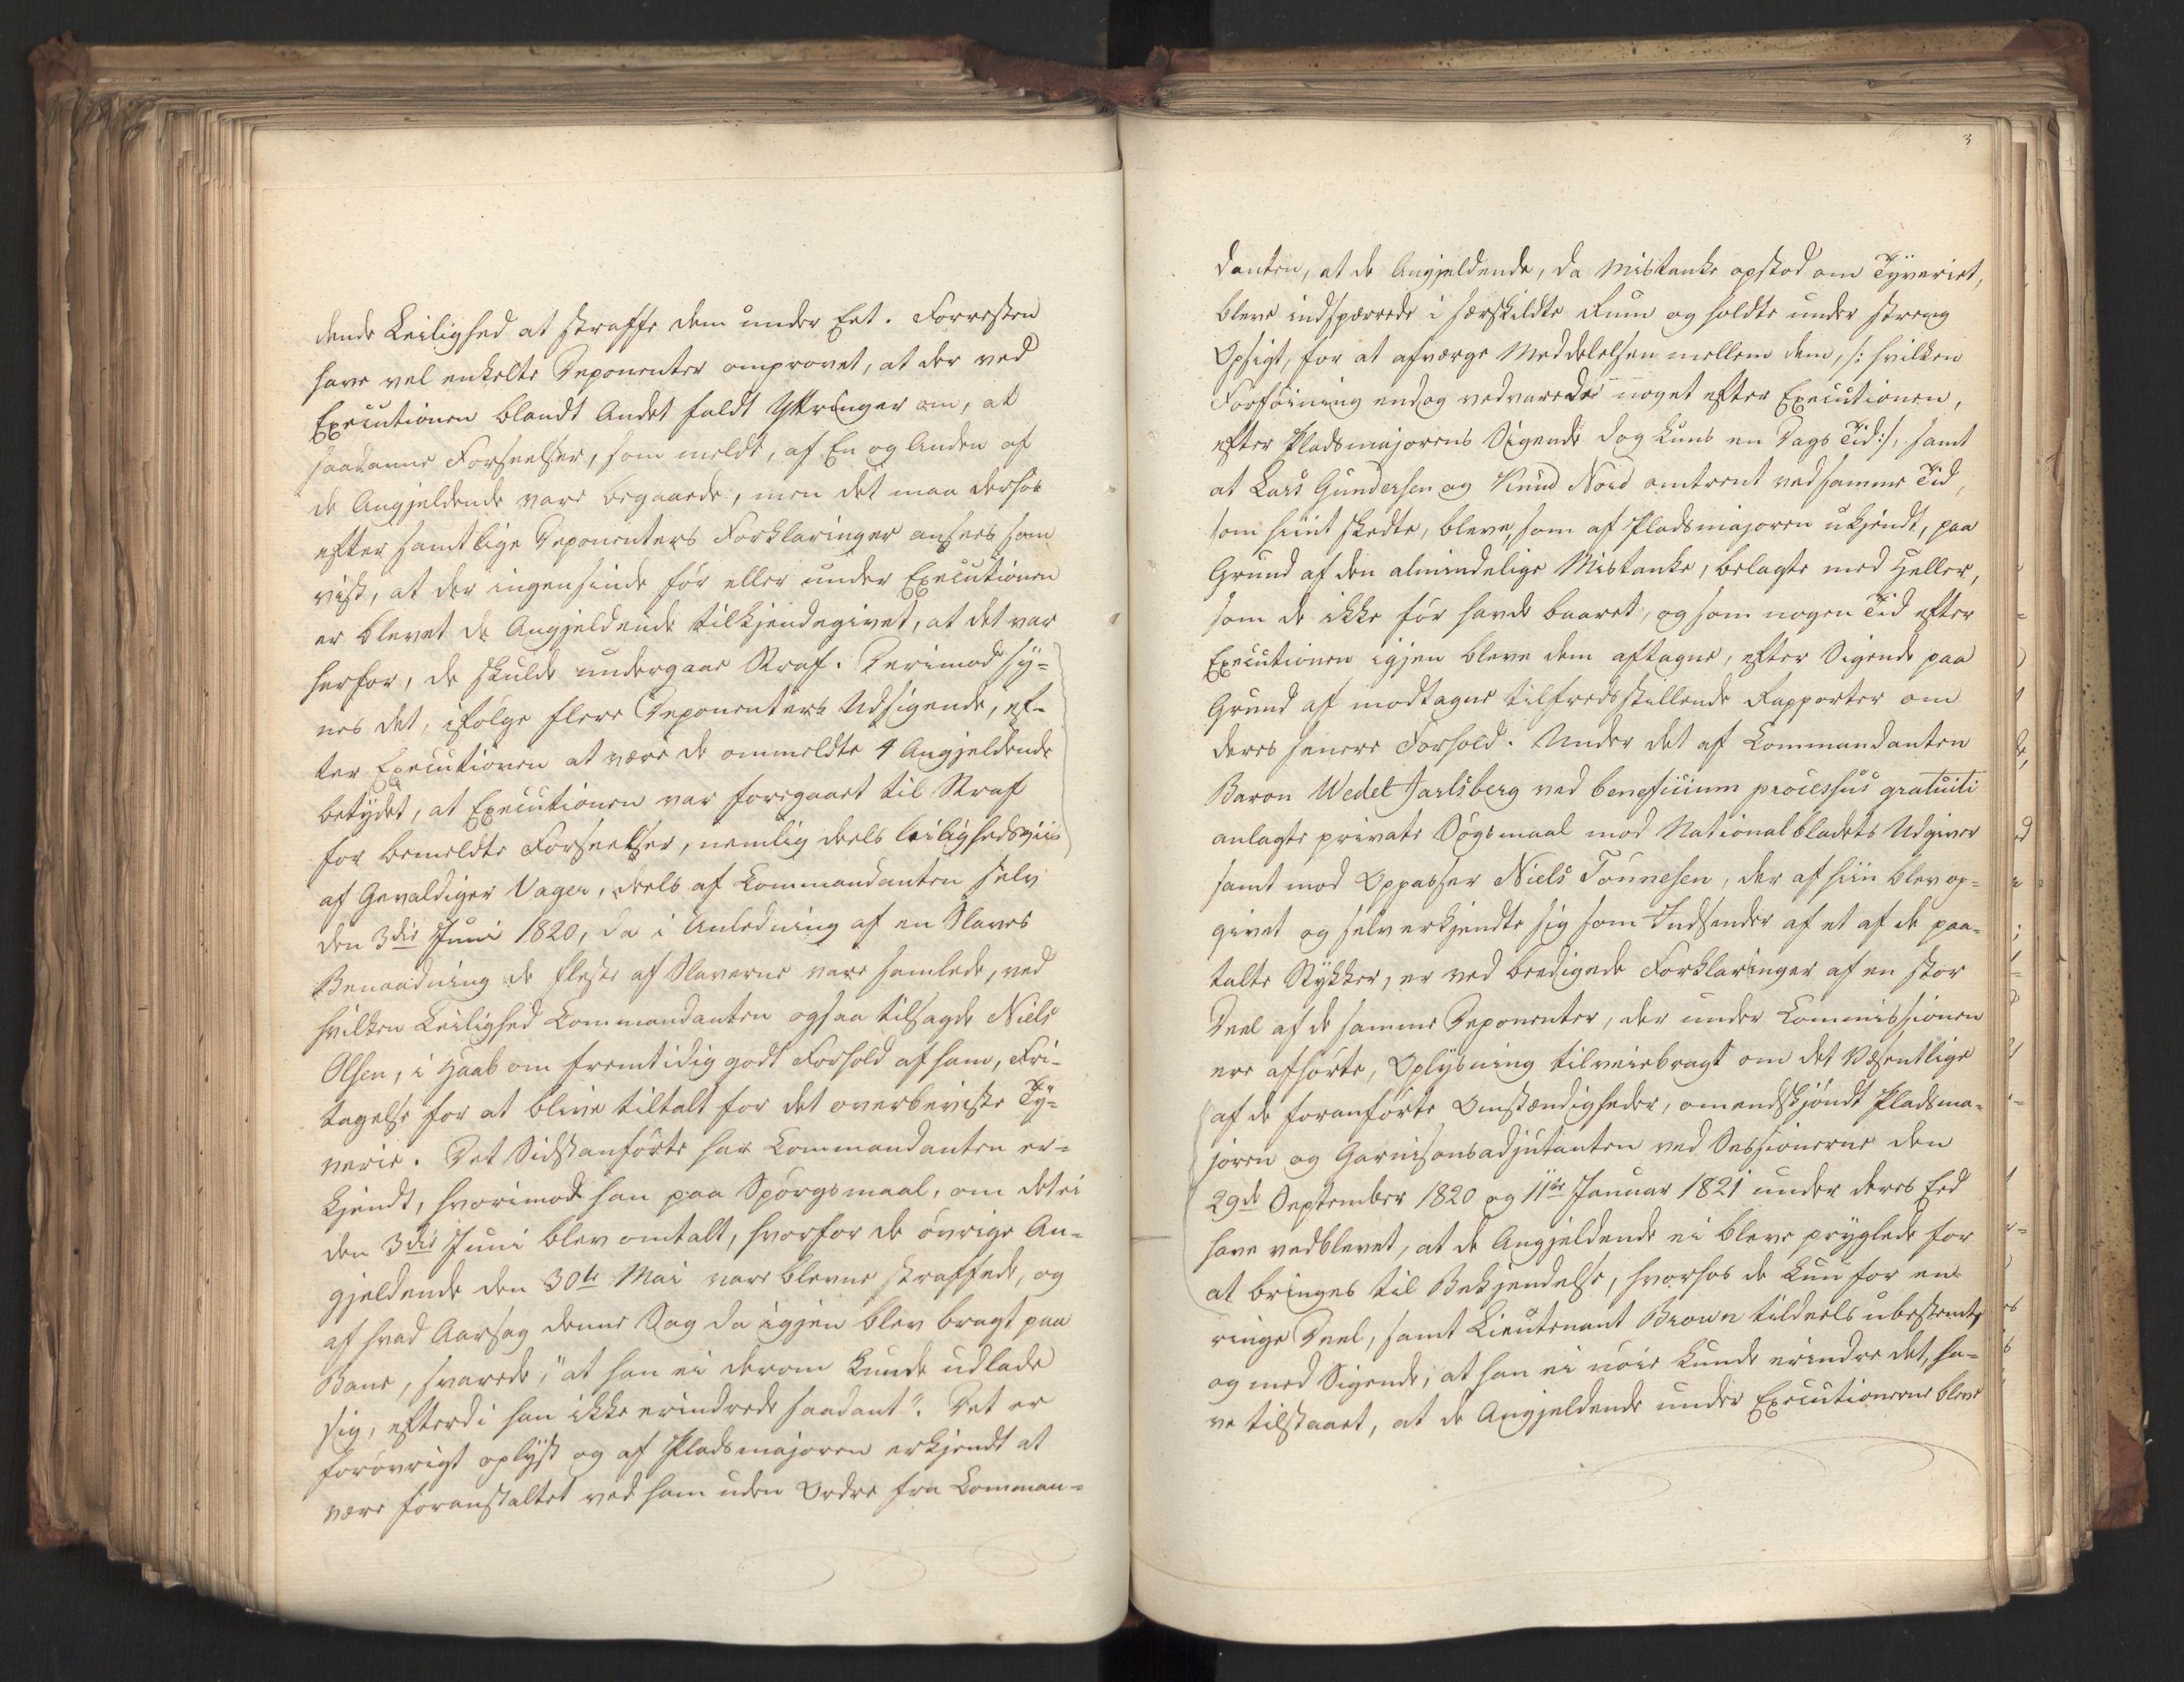 dende Leilighed at straffe dem under Eet. Forresten
have vel enkelte Deponenter omprovet, at der ved
Executionen blandt Andet faldt Yttringer om, at
saadanne Forseelser, som meldt, af En og Anden af
de Angjeldende vare begaaede, men det maa derhos
efter samtlige Deponenters Forklaringer ansees som
vist, at der ingensinde før eller under Executionen
er blevet de Angjeldende tilkjendegivet, at det var
herfor, de skulde undergaae Straf. Derimod sy=
nes det, ifølge flere Deponenters Udsigende, ef-
ter Executionen at være de ommeldte 4 Angjeldende
betydet, at Executionen var foregaaet til Straf
for bemeldte Forseelser, nemlig deels leilighedsviis
af Gevaldiger Vager, deels af Commandanten selv
den 3die Juni 1820, da i Anledning af en Slaves
Benaadning de fleste af Slaverne vare samlede, ved
hvilken Leilighed Commandanten ogsaa tilsagde Niels
Olsen, i Haab om fremtidig godt Forhold af ham, Fri-
tagelse for at blive tiltalt for det overbeviste Ty=
verie. Det Sidstanførte har Commandanten er=
kjendt, hvorimod han paa Spørgsmaal, om det ei
den 3die Juni blev omtalt, hvorfor de øvrige An-
gjeldende den 30te Mai vare blevne straffede, og
af hvad Aarsag denne Sag da igjen blev bragt paa
Bane, svarede, "at han ei derom kunde udlade
sig, efterdi han ikke erindrede saadant". Det er
forøvrigt oplyst og af Pladsmajoren erkjendt at
være foranstaltet ved ham uden Ordre fra Comman=
3
danten, at de Angjeldende, da Mistanke opstod om Tyveriet,
bleve indspærrede i særskildte Rum og holdte under streng
Opsigt, for at afværge Meddelelsen mellem dem, /: hvilken
Forføining endog vedvarede noget efter Executionen,
efter Pladsmajorens Sigende dog kuns en Dags Tid :/, samt
at Lars Gundersen og Knud Noid omtrent ved samme Tid,
som hiint skedte, bleve, som af Pladsmajoren ukjendt, paa
Grund af den almindelige Mistanke, belagte med Heller,
som de ikke før havde baaret, og som nogen Tid efter
Executionen igjen bleve dem aftagne, efter Sigende paa
Grund af modtagne tilfredsstillende Rapporter om
deres senere Forhold. Under det af Commandanten
Baron Wedel Jarlsberg ved beneficium processus gratuiti
anlagte private Søgsmaal mod Nationalbladets Udgiver
samt mod Oppasser Niels Tønnesen, der af hiin blev op=
givet og selv erkjendte sig som Indsender af et af de paa-
talte Stykker, er ved beedigede Forklaringer af en stor
Deel af de samme Deponenter, der under Commissionen
ere afhørte, Oplysning tilveiebragt om det Væsentlige
af de foranførte Omstændigheder, omendskjøndt Pladsma-
joren og Garnisonsadjutanten ved Sessionerne den
29de September 1820 og 11te Januar 1821 under deres Eed
have vedblevet, at de Angjeldende ei bleve pryglede for
at bringes til Bekjendelse, hvorhos de kun for en
ringe Deel, samt Lieutenant Brown tildeels ubestemt,
og med Sigende, at han ei nøie kunde erindre det, ha-
ve tilstaaet, at de Angjeldende under Executionerne bleve